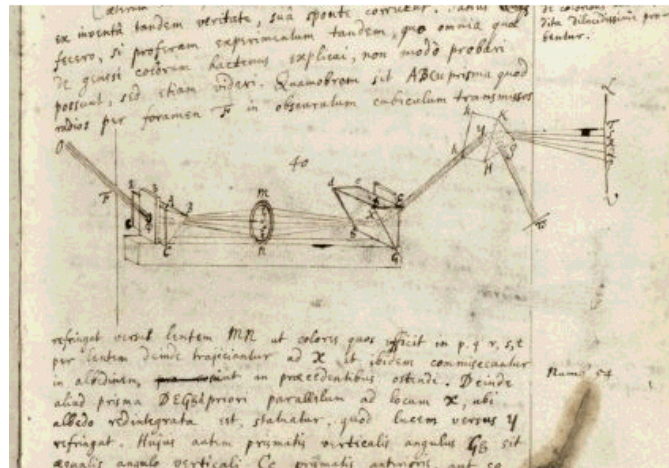 ex inventâ tandem veritate, suâ sponte corruent. Satius
fecero, si proferam experimentum tandem, quo omnia quæ
de genesi colorum hactenus explicui, non modò probari
possunt, sed etiam videri. Quamobrem sit ABC prisma quod
radios per foramen F in obscuratum cubiculum transmissos
de coloribus
dita dilucidissime pro
bentur.
40
O
F
A
B
C
M
N
D
E
G
X
Y
H
K
refringat versus lentem MN ut colores quos efficit in p. q r, s, t
per lentem deinde trajiciantur ad X et ibidem commisceantur
in albedinem, ut in præcedentibus ostendi. Deinde
aliud prisma DEG priori parallelum ad locum X, ubi
albedo redintegrata est, statuatur, quod lucem versus Y
refringat. Hujus autem prismatis verticalis angulus G sit
æqualis angulo verticali C prismatis anterioris, aut eo
Num. 54